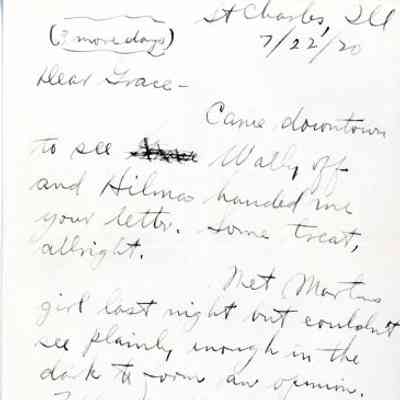 St Charles, Ill
(3 more days)
7/22/20
Dear Grace-
Came downtown
to see Wally off
and Hilmas handed me
your letter. Some treat,
allright.
Met Martins
girl last night but couldn't
see plainly enough in the
dark to form an opinion.